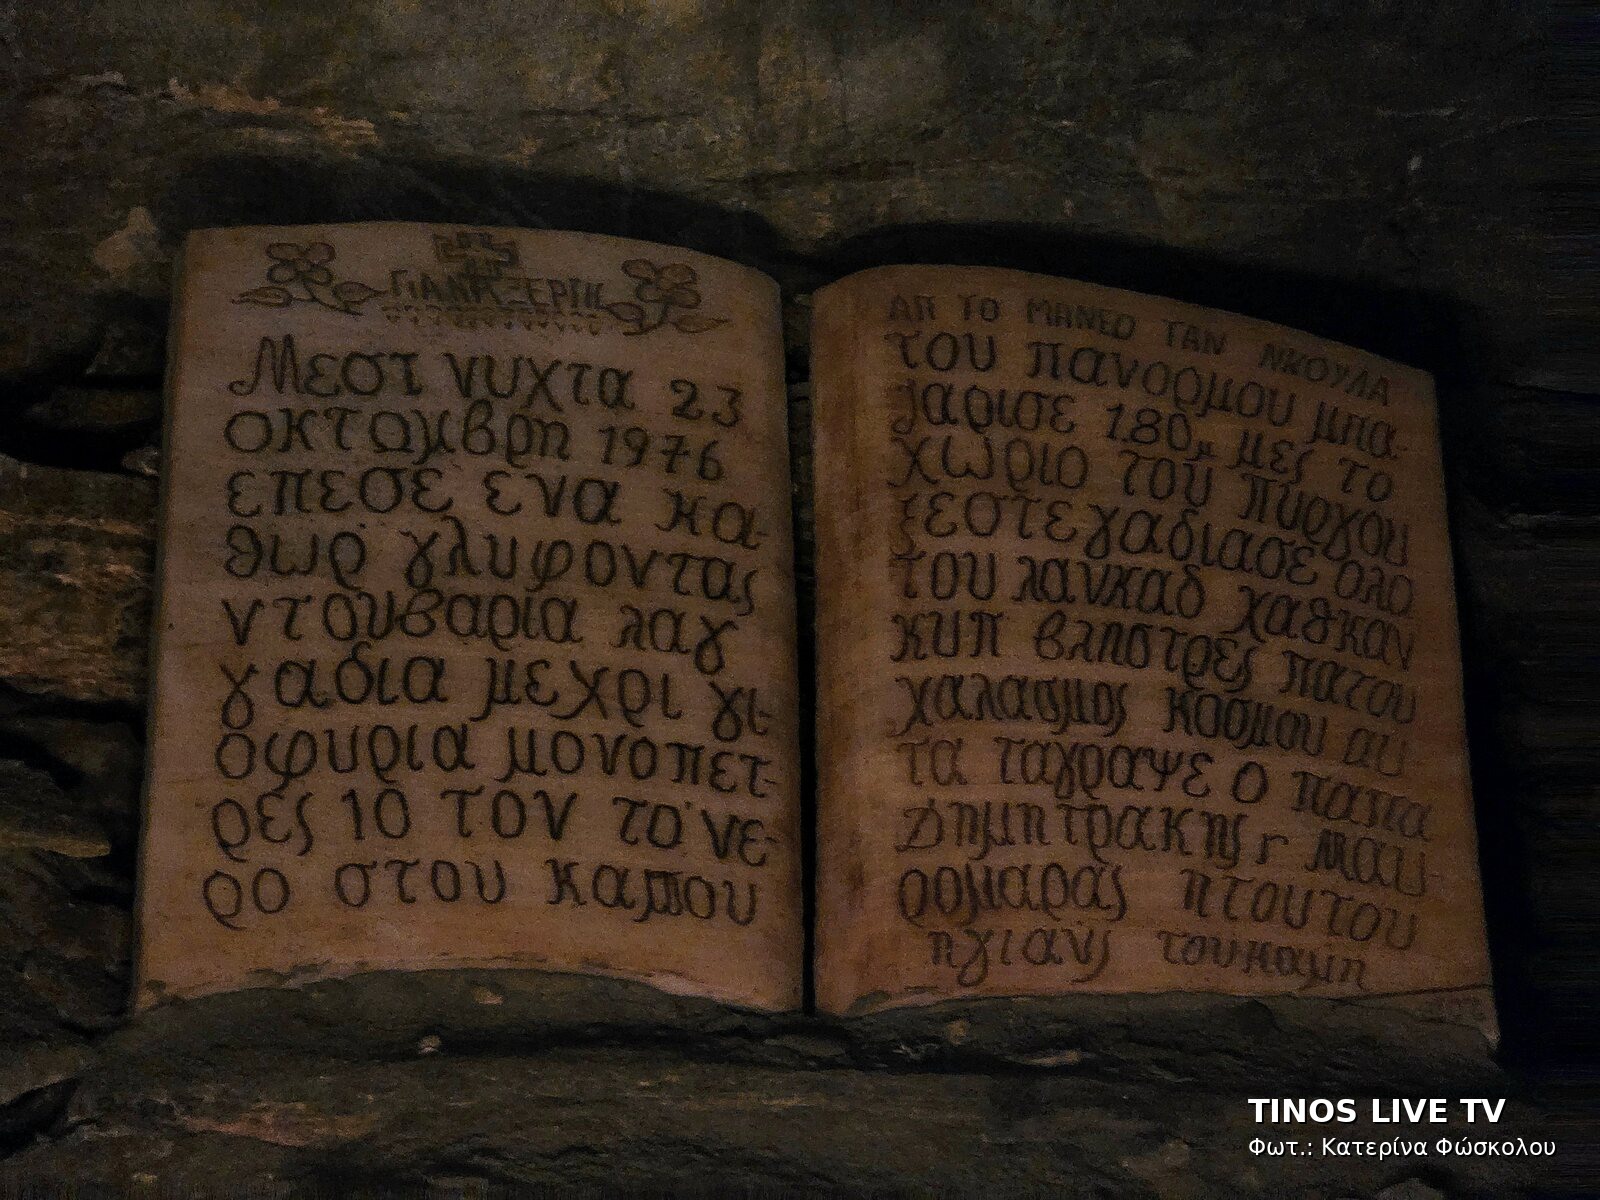 Μεστ νυχτα 23
οκτωμβρη 1976
επεσε ενα κα-
θωρ γλυφοντας
ντουβαρια λαγ
γαδια μεχρι γι-
οφυρια μονοπετ-
ρες 10 τον το νε-
ρο στου καμπου
ΑΠ ΤΟ ΜΑΝΕΟ ΤΑΝ ΝΚΟΥΛΑ
του πανορμου μπα-
ζαρισε 1.80μ μες το
χωριο του πυργου
ξεστεγαδιασε ολο
του λανκαδ χαθκαν
κυπ βληστρες πατου
χαλασμος κοσμου αυ
τα ταγραψε ο παπα
Δημητρακης γ Μαυ-
ρομαρας ητουτου
ηγιανς τουκαμη
TINOS LIVE TV
Φωτ.: Κατερίνα Φώσκολου